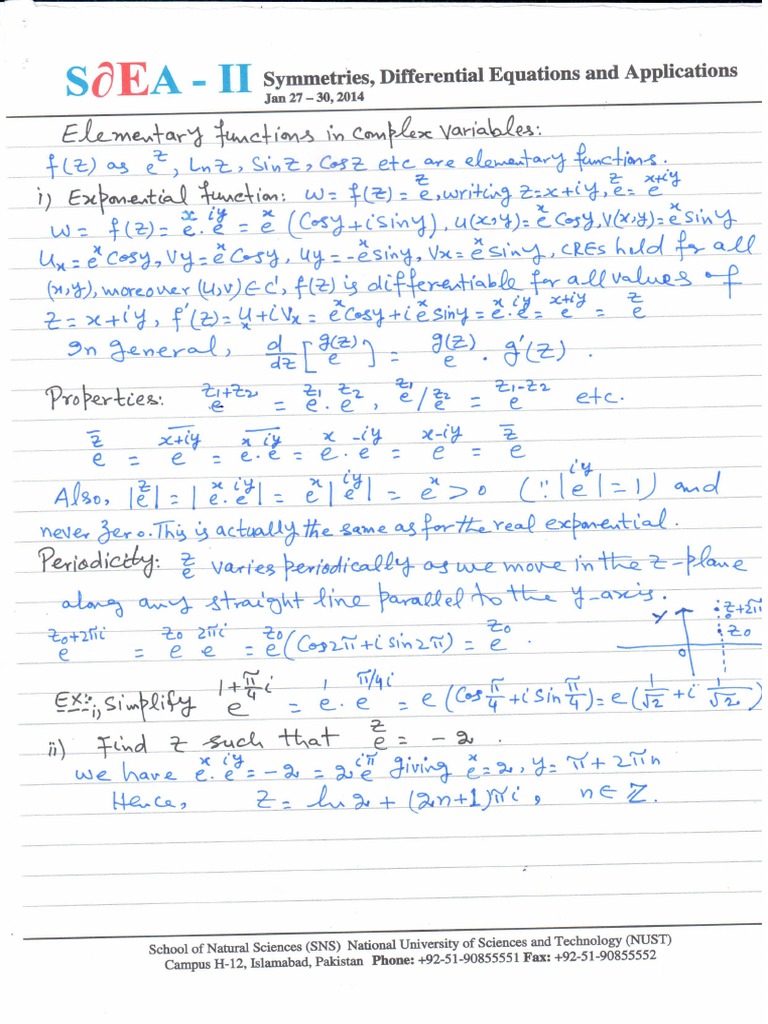 S∂EA - II Symmetries, Differential Equations and Applications
Jan 27 – 30, 2014
Elementary functions in complex variables:
f(z) as e^z, Ln z, Sin z, Cos z etc are elementary functions.
i) Exponential function: w = f(z) = e^z, writing z = x+iy, e^z = e^{x+iy}
w = f(z) = e^x . e^{iy} = e^x (Cos y + i Sin y), u(x,y) = e^x Cos y, v(x,y) = e^x Sin y
u_x = e^x Cos y, v_y = e^x Cos y, u_y = -e^x Sin y, v_x = e^x Sin y, CREs hold for all
(x,y), moreover (u,v) ∈ C', f(z) is differentiable for all values of
z = x+iy, f'(z) = u_x + i v_x = e^x Cos y + i e^x Sin y = e^x . e^{iy} = e^{x+iy} = e^z
In general, d/dz [e^{g(z)}] = e^{g(z)} . g'(z) .
Properties: e^{z1+z2} = e^{z1} . e^{z2}, e^{z1}/e^{z2} = e^{z1-z2} etc.
e^{z̅} = \overline{e^{x+iy}} = \overline{e^x . e^{iy}} = e^x . e^{-iy} = e^{x-iy} = e^{z̅}
Also, |e^z| = |e^x . e^{iy}| = e^x |e^{iy}| = e^x > 0 (∵ |e^{iy}| = 1) and
never zero. This is actually the same as for the real exponential.
Periodicity: e^z varies periodically as we move in the z-plane
along any straight line parallel to the y-axis.
y z+2πi
e^{z0+2πi} = e^{z0} e^{2πi} = e^{z0} (Cos 2π + i sin 2π) = e^{z0} . 0 z0
EX:- i, Simplify e^{1+π/4 i} = e^1 . e^{π/4 i} = e (Cos π/4 + i Sin π/4) = e (1/√2 + i 1/√2)
ii) Find z such that e^z = -2 .
we have e^x . e^{iy} = -2 = 2 e^{iπ} giving e^x = 2, y = π + 2πn
Hence, z = ln 2 + (2n+1)πi, n ∈ ℤ.
School of Natural Sciences (SNS) National University of Sciences and Technology (NUST)
Campus H-12, Islamabad, Pakistan Phone: +92-51-90855551 Fax: +92-51-90855552